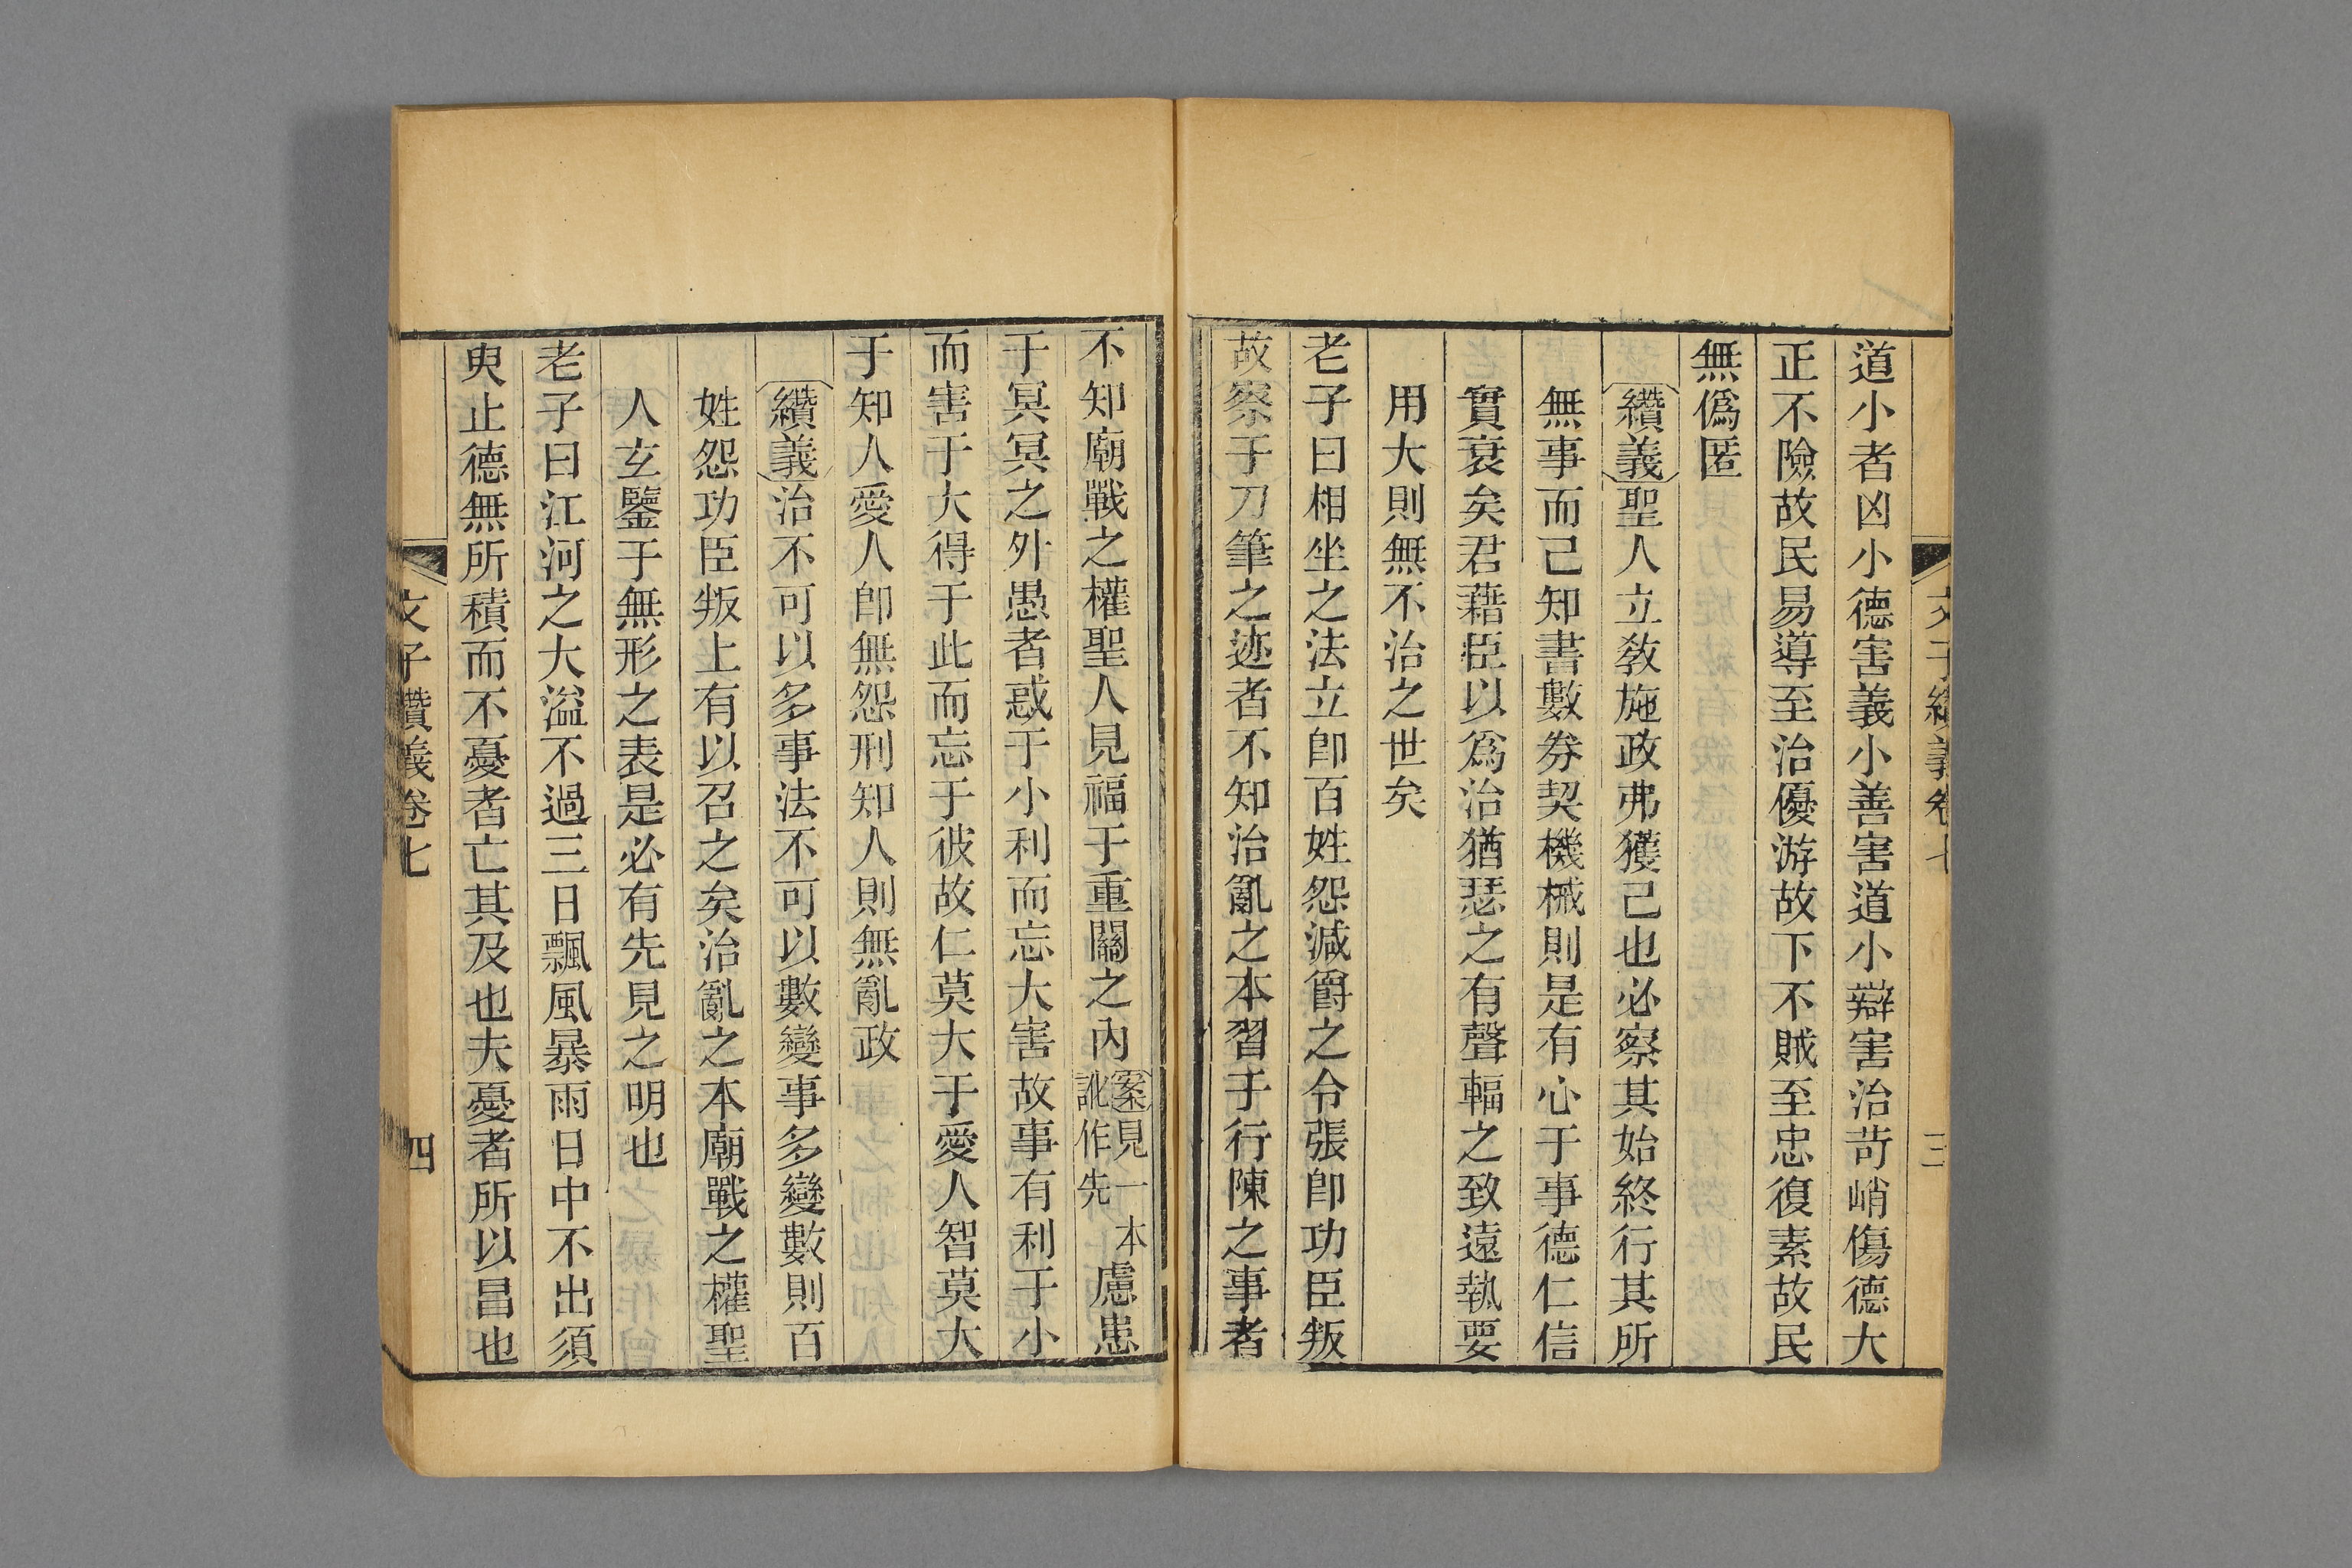 文子纘義卷七
三
道小者凶小德害義小善害道小辯害治苛峭傷德大
正不險故民易導至治優游故下不賊至忠復素故民
無僞匿
纘義聖人立敎施政弗獲己也必察其始終行其所
無事而己知書數券契機械則是有心于事德仁信
實衰矣君藉臣以爲治猶瑟之有聲輻之致遠執要
用大則無不治之世矣
老子曰相坐之法立卽百姓怨減爵之令張卽功臣叛
故察于刀筆之迹者不知治亂之本習于行陳之事者
不知廟戰之權聖人見福于重關之內案見一本訛作先慮患
于冥冥之外愚者惑于小利而忘大害故事有利于小
而害于大得于此而忘于彼故仁莫大于愛人智莫大
于知人愛人卽無怨刑知人則無亂政
纘義治不可以多事法不可以數變事多變數則百
姓怨功臣叛上有以召之矣治亂之本廟戰之權聖
人玄鑒于無形之表是必有先見之明也
老子曰江河之大溢不過三日飄風暴雨日中不出須
臾止德無所積而不憂者亡其及也夫憂者所以昌也
文子纘義卷七
四